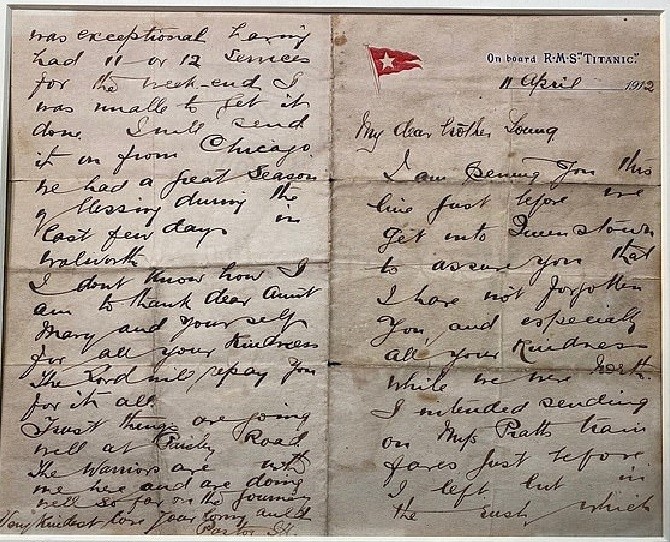 On board R·M·S "TITANIC."
11 April 1912
My dear brother Young
I am penning you this
line just before we
get into Queenstown
to assure you that
I have not forgotten
you, and especially
all your kindness
while we were North.
I intended sending
on Miss Pratts train
fares just before
I left but in
the rush which
was exceptional having
had 11 or 12 services
for the week-end I
was unable to get it
done I will send
it on from Chicago
we had a great season
of blessing during the
last few days in
Walworth
I dont know how I
am to thank dear Aunt
Mary and yourself
for all your kindness
The Lord will repay you
for it all
Trust things are going
well at Paisley Road
The Warriors are with
me here and are doing
well so far on the journey
Very kindest love your loving auld
Pastor J.H.